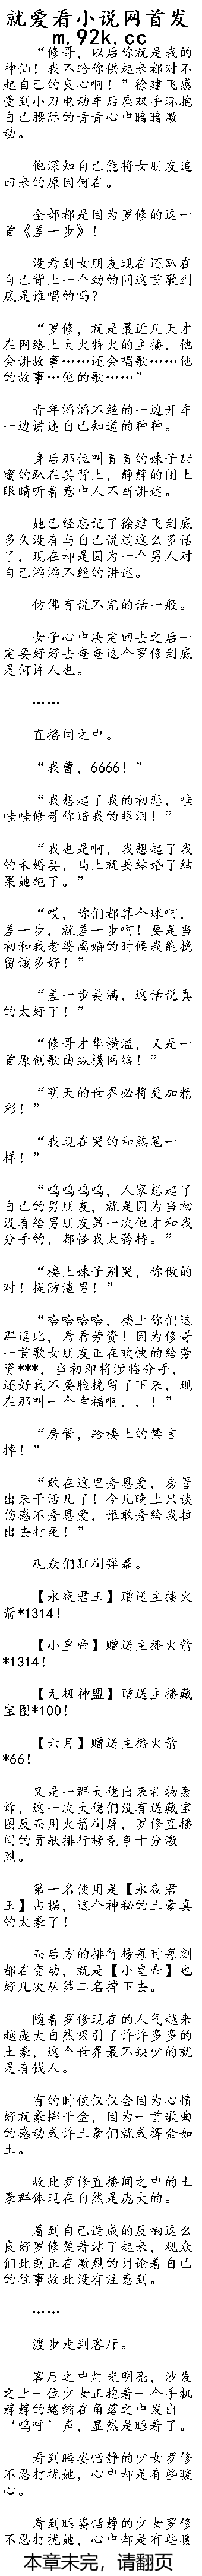 就爱看小说网首发
m.92k.cc
“修哥，以后你就是我的
神仙！我不给你供起来都对不
起自己的良心啊！”徐建飞感
受到小刀电动车后座双手环抱
自己腰际的青青心中暗暗激
动。
他深知自己能将女朋友追
回来的原因何在。
全部都是因为罗修的这一
首《差一步》！
没看到女朋友现在还趴在
自己背上一个劲的问这首歌到
底是谁唱的吗？
“罗修，就是最近几天才
在网络上大火特火的主播，他
会讲故事……还会唱歌……他
的故事…他的歌……”
青年滔滔不绝的一边开车
一边讲述自己知道的种种。
身后那位叫青青的妹子甜
蜜的趴在其背上，静静的闭上
眼睛听着意中人不断讲述。
她已经忘记了徐建飞到底
多久没有与自己说过这么多话
了，现在却是因为一个男人对
自己滔滔不绝的讲述。
仿佛有说不完的话一般。
女子心中决定回去之后一
定要好好去查查这个罗修到底
是何许人也。
……
直播间之中。
“我曹，6666！”
“我想起了我的初恋，哇
哇哇修哥你赔我的眼泪！”
“我也是啊，我想起了我
的未婚妻，马上就要结婚了结
果她跑了。”
“哎，你们都算个球啊，
差一步，就差一步啊！要是当
初和我老婆离婚的时候我能挽
留该多好！”
“差一步美满，这话说真
的太好了！”
“修哥才华横溢，又是一
首原创歌曲纵横网络！”
“明天的世界必将更加精
彩！”
“我现在哭的和煞笔一
样！”
“呜呜呜呜，人家想起了
自己的男朋友，就是因为当初
没有给男朋友第一次他才和我
分手的，都怪我太矜持。”
“楼上妹子别哭，你做的
对！提防渣男！”
“哈哈哈哈，楼上你们这
群逗比，看看劳资！因为修哥
一首歌女朋友正在欢快的给劳
资***，当初即将涉临分手，
还好我不要脸挽留了下来，现
在那叫一个幸福啊．．！”
“房管，给楼上的禁言
掉！”
“敢在这里秀恩爱，房管
出来干活儿了！今儿晚上只谈
伤感不秀恩爱，谁敢秀给我拉
出去打死！”
观众们狂刷弹幕。
【永夜君王】赠送主播火
箭*1314！
【小皇帝】赠送主播火箭
*1314！
【无极神盟】赠送主播藏
宝图*100！
【六月】赠送主播火箭
*66！
又是一群大佬出来礼物轰
炸，这一次大佬们没有送藏宝
图反而用火箭刷屏，罗修直播
间的贡献排行榜竞争十分激
烈。
第一名使用是【永夜君
王】占据，这个神秘的土豪真
的太豪了！
而后方的排行榜每时每刻
都在变动，就是【小皇帝】也
好几次从第二名掉下去。
随着罗修现在的人气越来
越庞大自然吸引了许许多多的
土豪，这个世界最不缺少的就
是有钱人。
有的时候仅仅会因为心情
好就豪掷千金，因为一首歌曲
的感动或许土豪们就或挥金如
土。
故此罗修直播间之中的土
豪群体现在自然是庞大的。
看到自己造成的反响这么
良好罗修笑着站了起来，观众
们此刻正在激烈的讨论着自己
的往事故此没有注意到。
……
渡步走到客厅。
客厅之中灯光明亮，沙发
之上一位少女正抱着一个手机
静静的蜷缩在角落之中发出
‘呜呼’声，显然是睡着了。
看到睡姿恬静的少女罗修
不忍打扰她，心中却是有些暖
心。
看到睡姿恬静的少女罗修
不忍打扰她，心中却是有些暖
本章未完，请翻页